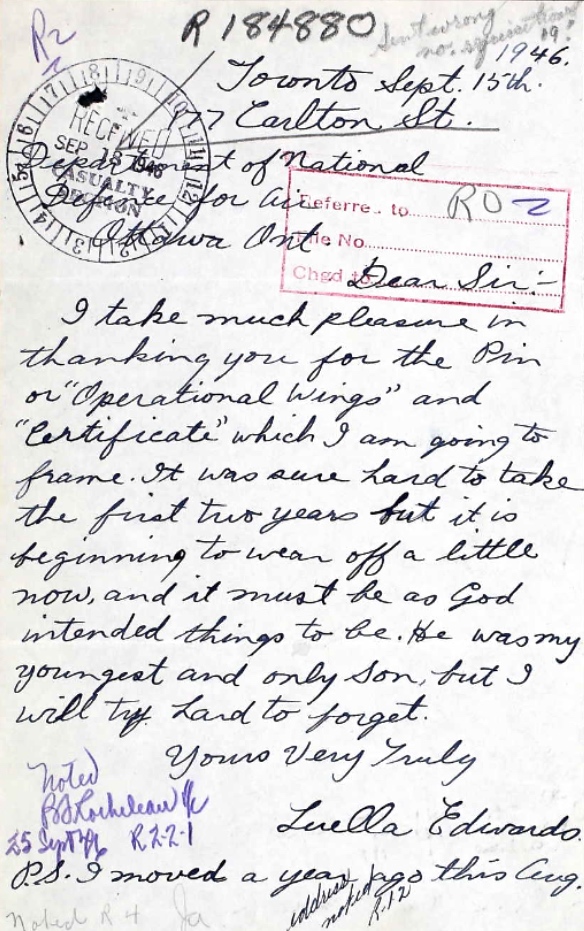 R2
R 184880
Sent wrong
no.
1946.
Toronto Sept. 15th.
77 Carlton St.
RECEIVED
SEP 18 1946
CASUALTY
DIVISION
Department of National
Defence for Air
Ottawa Ont
Referred to RO2
File No.
Chgd to
Dear Sir:-
I take much pleasure in
thanking you for the Pin
or "Operational Wings" and
"Certificate" which I am going to
frame. It was sure hard to take
the first two years but it is
beginning to wear off a little
now, and it must be as God
intended things to be. He was my
youngest and only son, but I
will try hard to forget.
Yours Very Truly
Luella Edwards.
Noted
25 Sept 46 R2-2-1
P.S. I moved a year ago this Aug.
address
noted
R-12
Noted R4